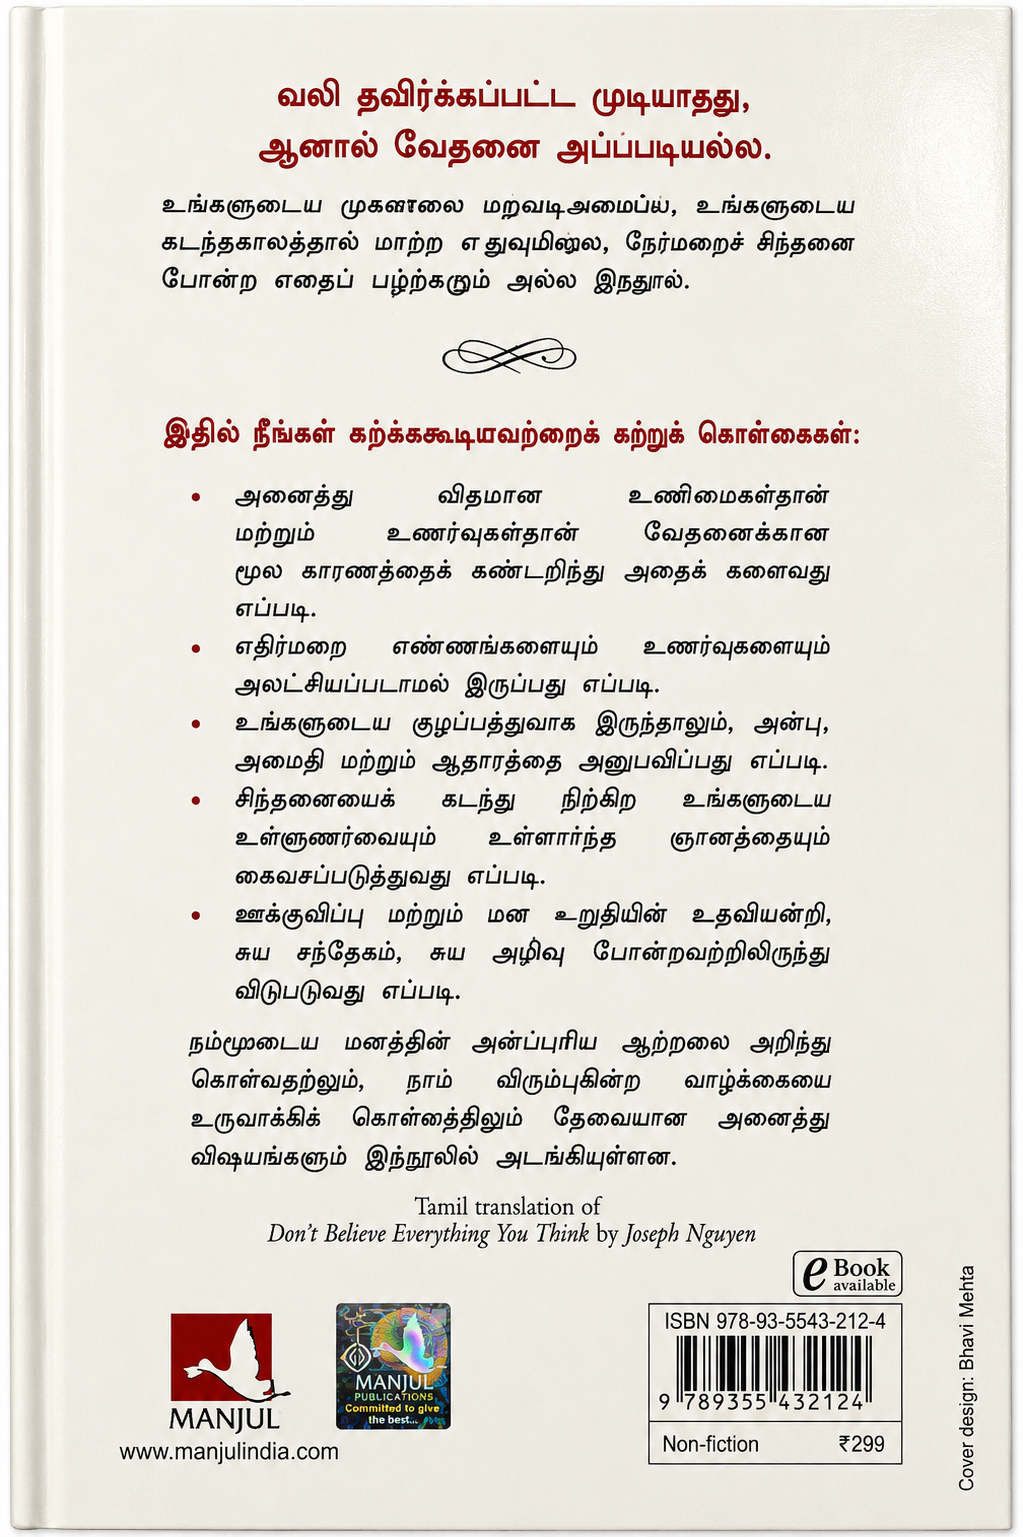 வலி தவிர்க்கப்பட்ட முடியாதது,
ஆனால் வேதனை அப்படியல்ல.
உங்களுடைய உங்களுடைய
கடந்தகாலத்தால் மாற்ற நேர்மறைச் சிந்தனை
போன்ற எதைப் அல்ல
இதில் நீங்கள் கற்க்ககூடியவற்றைக் கற்றுக் கொள்கைகள்:
• அனைத்து விதமான உணிமைகள்தான்
மற்றும் உணர்வுகள்தான் வேதனைக்கான
மூல காரணத்தைக் கண்டறிந்து அதைக் களைவது
எப்படி.
• எதிர்மறை எண்ணங்களையும் உணர்வுகளையும்
அலட்சியப்படாமல் இருப்பது எப்படி.
• உங்களுடைய குழப்பத்துவாக இருந்தாலும், அன்பு,
அமைதி மற்றும் ஆதாரத்தை அனுபவிப்பது எப்படி.
• சிந்தனையைக் கடந்து நிற்கிற உங்களுடைய
உள்ளுணர்வையும் உள்ளார்ந்த ஞானத்தையும்
கைவசப்படுத்துவது எப்படி.
• ஊக்குவிப்பு மற்றும் மன உறுதியின் உதவியன்றி,
சுய சந்தேகம், சுய அழிவு போன்றவற்றிலிருந்து
விடுபடுவது எப்படி.
மனத்தின் அன்ப்புரிய ஆற்றலை அறிந்து
கொள்வதற்லும், நாம் விரும்புகின்ற வாழ்க்கையை
உருவாக்கிக் தேவையான அனைத்து
விஷயங்களும் இந்நூலில் அடங்கியுள்ளன.
Tamil translation of
Don't Believe Everything You Think by Joseph Nguyen
eBook
available
MANJUL
www.manjulindia.com
MANJUL
PUBLICATIONS
Committed to give
the best...
ISBN 978-93-5543-212-4
9 789355 432124
Non-fiction ₹299
Cover design: Bhavi Mehta